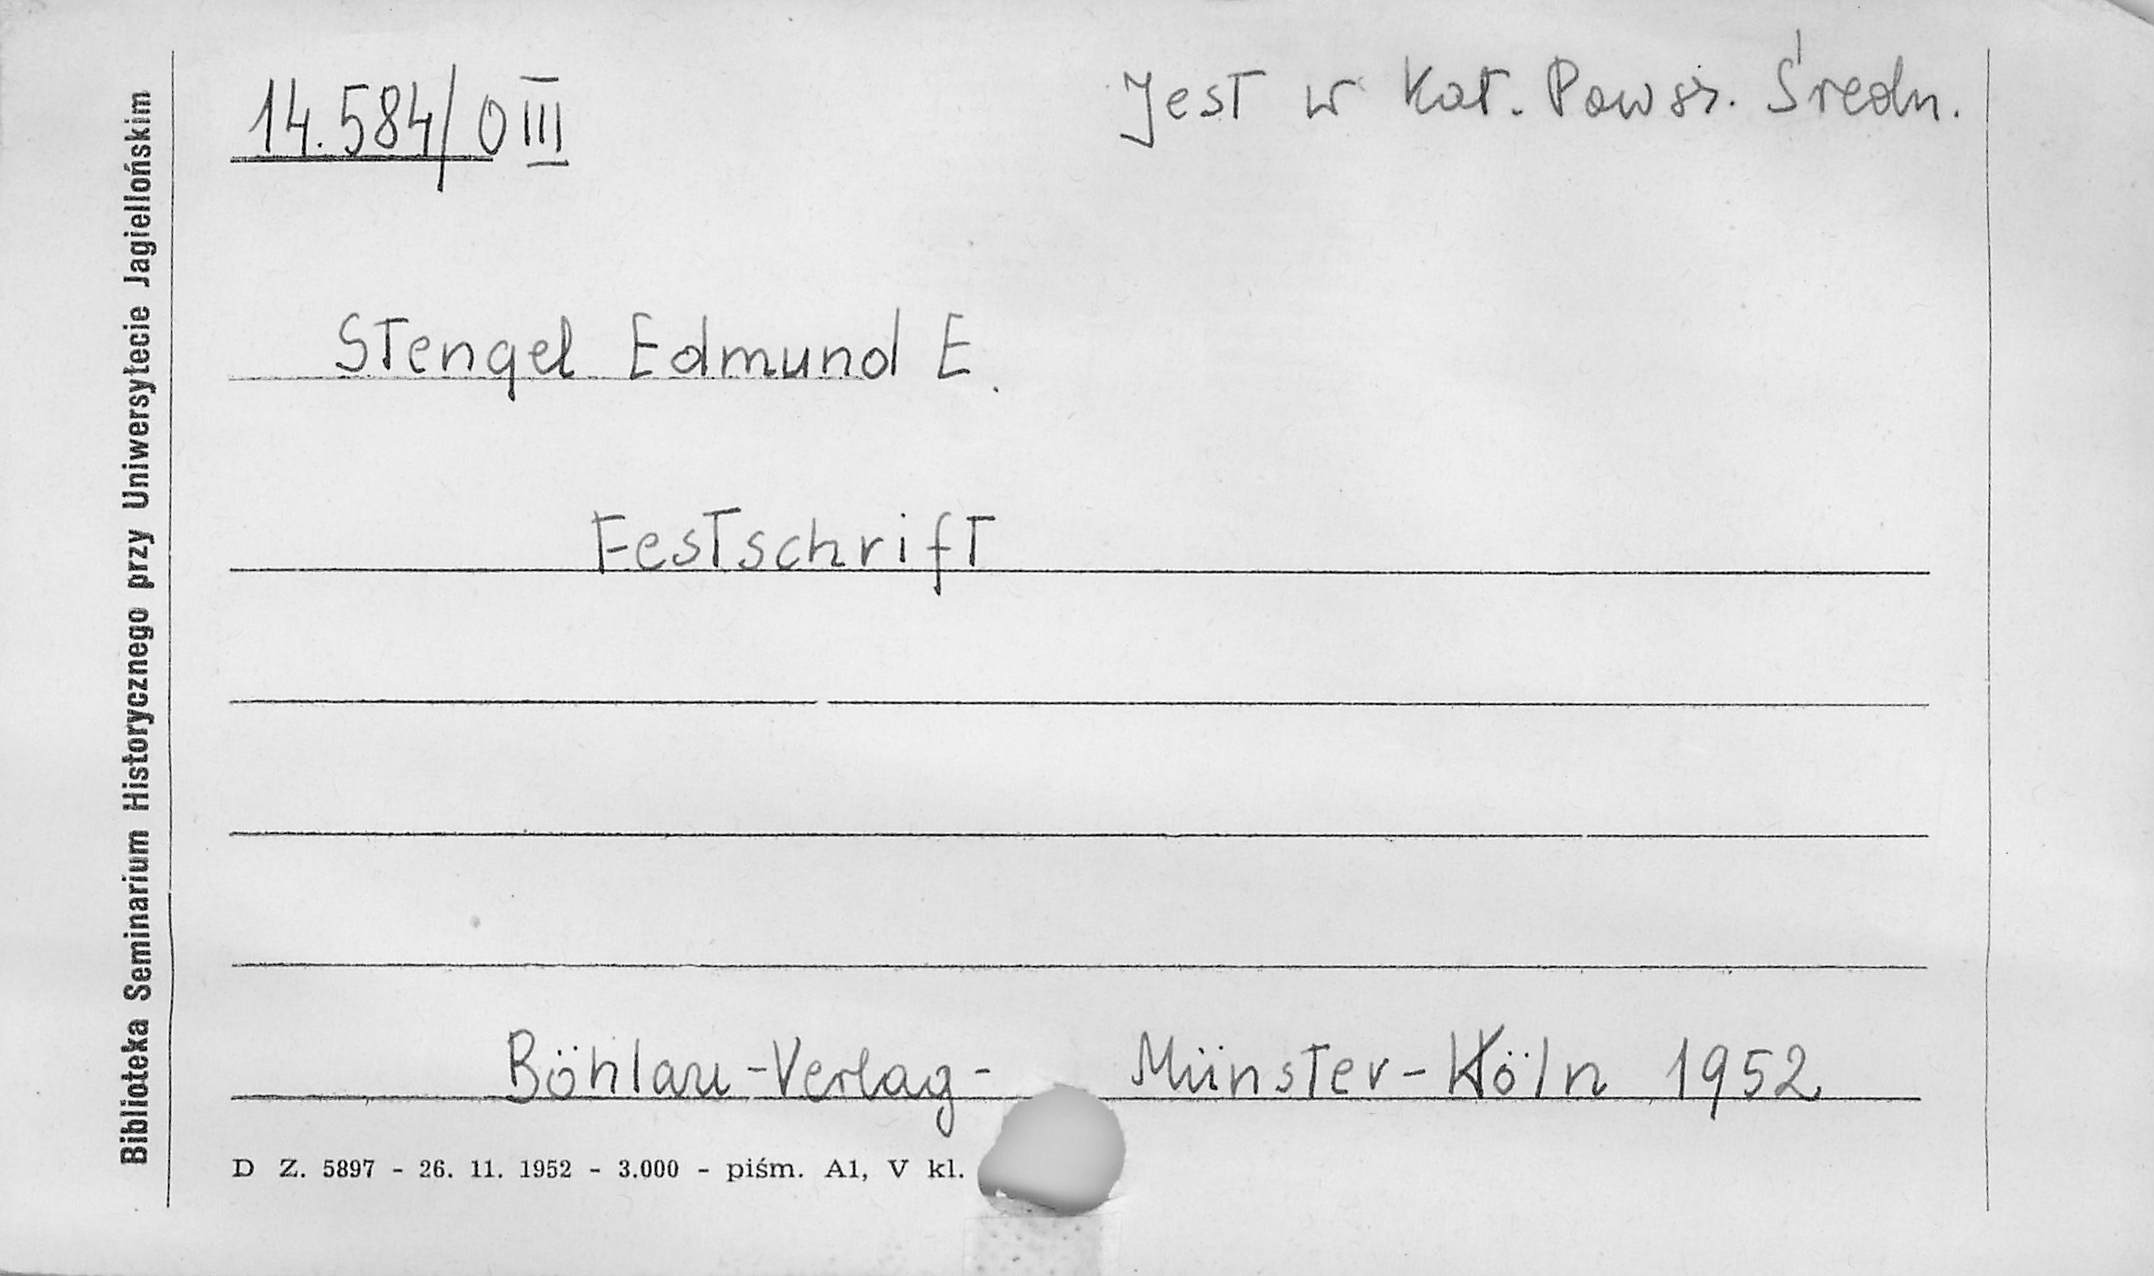 14.584/O III
Jest w Kat. Powsz. Średn.
Stengel Edmund E.
Festschrift
Böhlau-Verlag- Münster-Köln 1952
D Z. 5897 - 26. 11. 1952 - 3.000 - piśm. A1, V kl.
Biblioteka Seminarium Historycznego przy Uniwersytecie Jagiellońskim